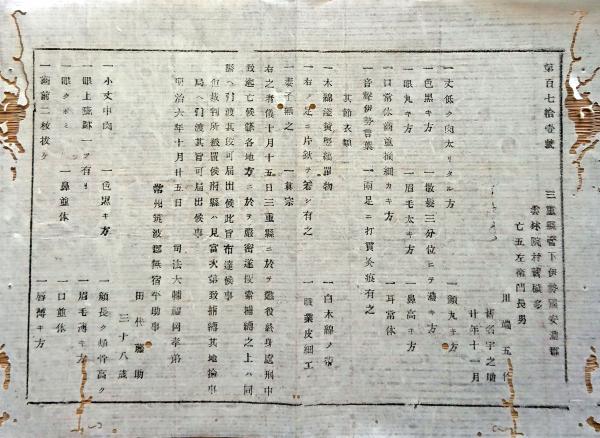 第百七拾壹號
三重縣管下伊勢國安濃郡
雲林院村舊穢多
亡五左衛門長男
川端五作
新名宇之助
廿年十一月
一丈低ク肉太リタル方
一顔丸キ方
一色黒キ方
一散髮三分位ニテ濃キ方
一眼丸キ方
一眉毛太キ方
一鼻高キ方
一口常体齒重細カキ方
一耳常体
一音聲伊勢言葉
一兩足ニ打貫灸痕有之
其節衣類
一木綿淺黄竪縞單物
一白木綿ノ帶
一右ノ足ニ片鈦ヲ着シ有之
一職業皮細工
一妻子無之
一眞宗
右之者儀十月十五日三重縣ニ於テ懲役終身處刑中
致逃亡候條各地方ニ於テ嚴密遂搜索捕縛之上ハ同
縣ヘ引渡其段可届出候此旨布達候事
但裁判所被置候府縣ハ見當次第致捕縛其地檢事
局ヘ引渡其旨可届出候事
明治六年十月廿五日
司法大輔福岡孝弟
常州筑波郡無宿平助事
田代藤助
三十八歳
一小丈中肉
一色黒キ方
一顔長ク頬骨高ク
一眼上ニ疵一ツ有リ
一眉毛薄キ方
一眼クボミ
一鼻並体
一口並体
一齒前二枚拔ケ
一唇薄キ方